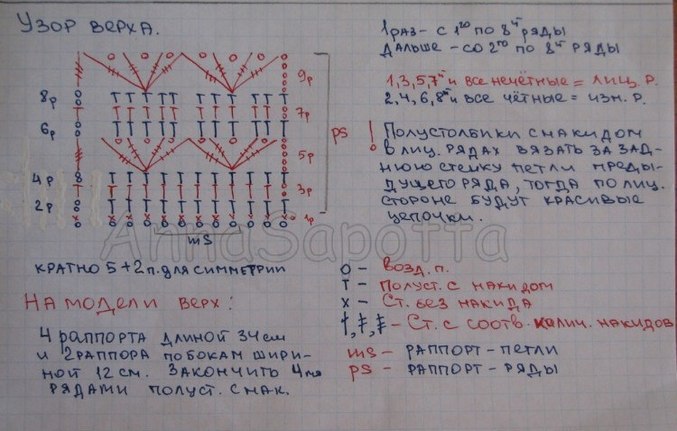 Узор верха.
1 раз - с 1го по 8й ряды
дальше - со 2го по 8й ряды
1,3,5,7й и все нечётные = лиц. р.
2,4,6,8й и все чётные = изн. р.
9р
8р
7р
6р
5р
4р
3р
2р
1р
ps
ms
! Полустолбики с накидом
в лиц. рядах вязать за зад-
нюю стенку петли преды-
дущего ряда, тогда по лиц.
стороне будут красивые
цепочки.
AnnaSapotta
кратно 5+2п. для симметрии
о - возд. п.
т - Полуст. с накидом
х - Ст. без накида
- Ст. с соотв. колич. накидов
ms - раппорт - петли
ps - раппорт - ряды
На модели верх:
4 раппорта длиной 34 см
и 2 раппора по бокам шири-
ной 12 см. Закончить 4мя
рядами полуст. с нак.